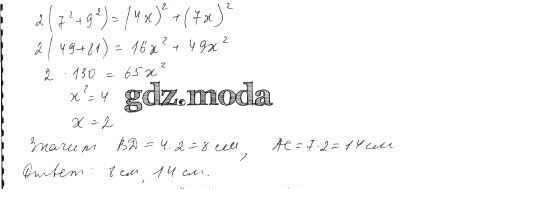 2(7²+9²)=(4x)²+(7x)²
2(49+81)=16x²+49x²
2·130=65x²
x²=4
gdz.moda
x=2
Значит BD=4·2=8 см, AC=7·2=14 см
Ответ: 8 см, 14 см.